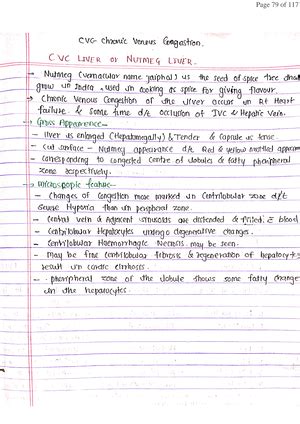 Page 79 of 117
CVC- Chronic Venous Congestion.
CVC LIVER OR NUTMEG LIVER.
→ Nutmeg (vernacular name Jaiphal) is the seed of spice tree that
grow in India. used in cooking as spice for giving flavour.
→ Chronic Venous Congestion of the liver occur in Rt Heart
failure & some time d/t occlusion of IVC & Hepatic Vein.
→ Gross Appearence-
- liver is enlarged (Hepatomegally) & Tender & capsule is tense
- cut surface - Nutmeg appearance d/t Red & yellow mottled appearn
- corresponding to congested centre of lobules & fatty pheripheral
zone respectively.
→ microscopic feature-
- changes of congestion more marked in centrilobular zone d/t
severe Hypoxia than in peripheral zone.
- Central vein & Adjacent sinusoids are distended & filled c̄ blood
- Centrilobular Hepatocytes undergo degenerative changes.
- Centrilobular Haemorrhagic Necrosis may be seen.
- May be fine centrilobular fibrosis & regeneration of hepatocytes
result in cardiac cirrhosis.
- pheripheral zone of the lobule shows some fatty change
in the hepatocytes.